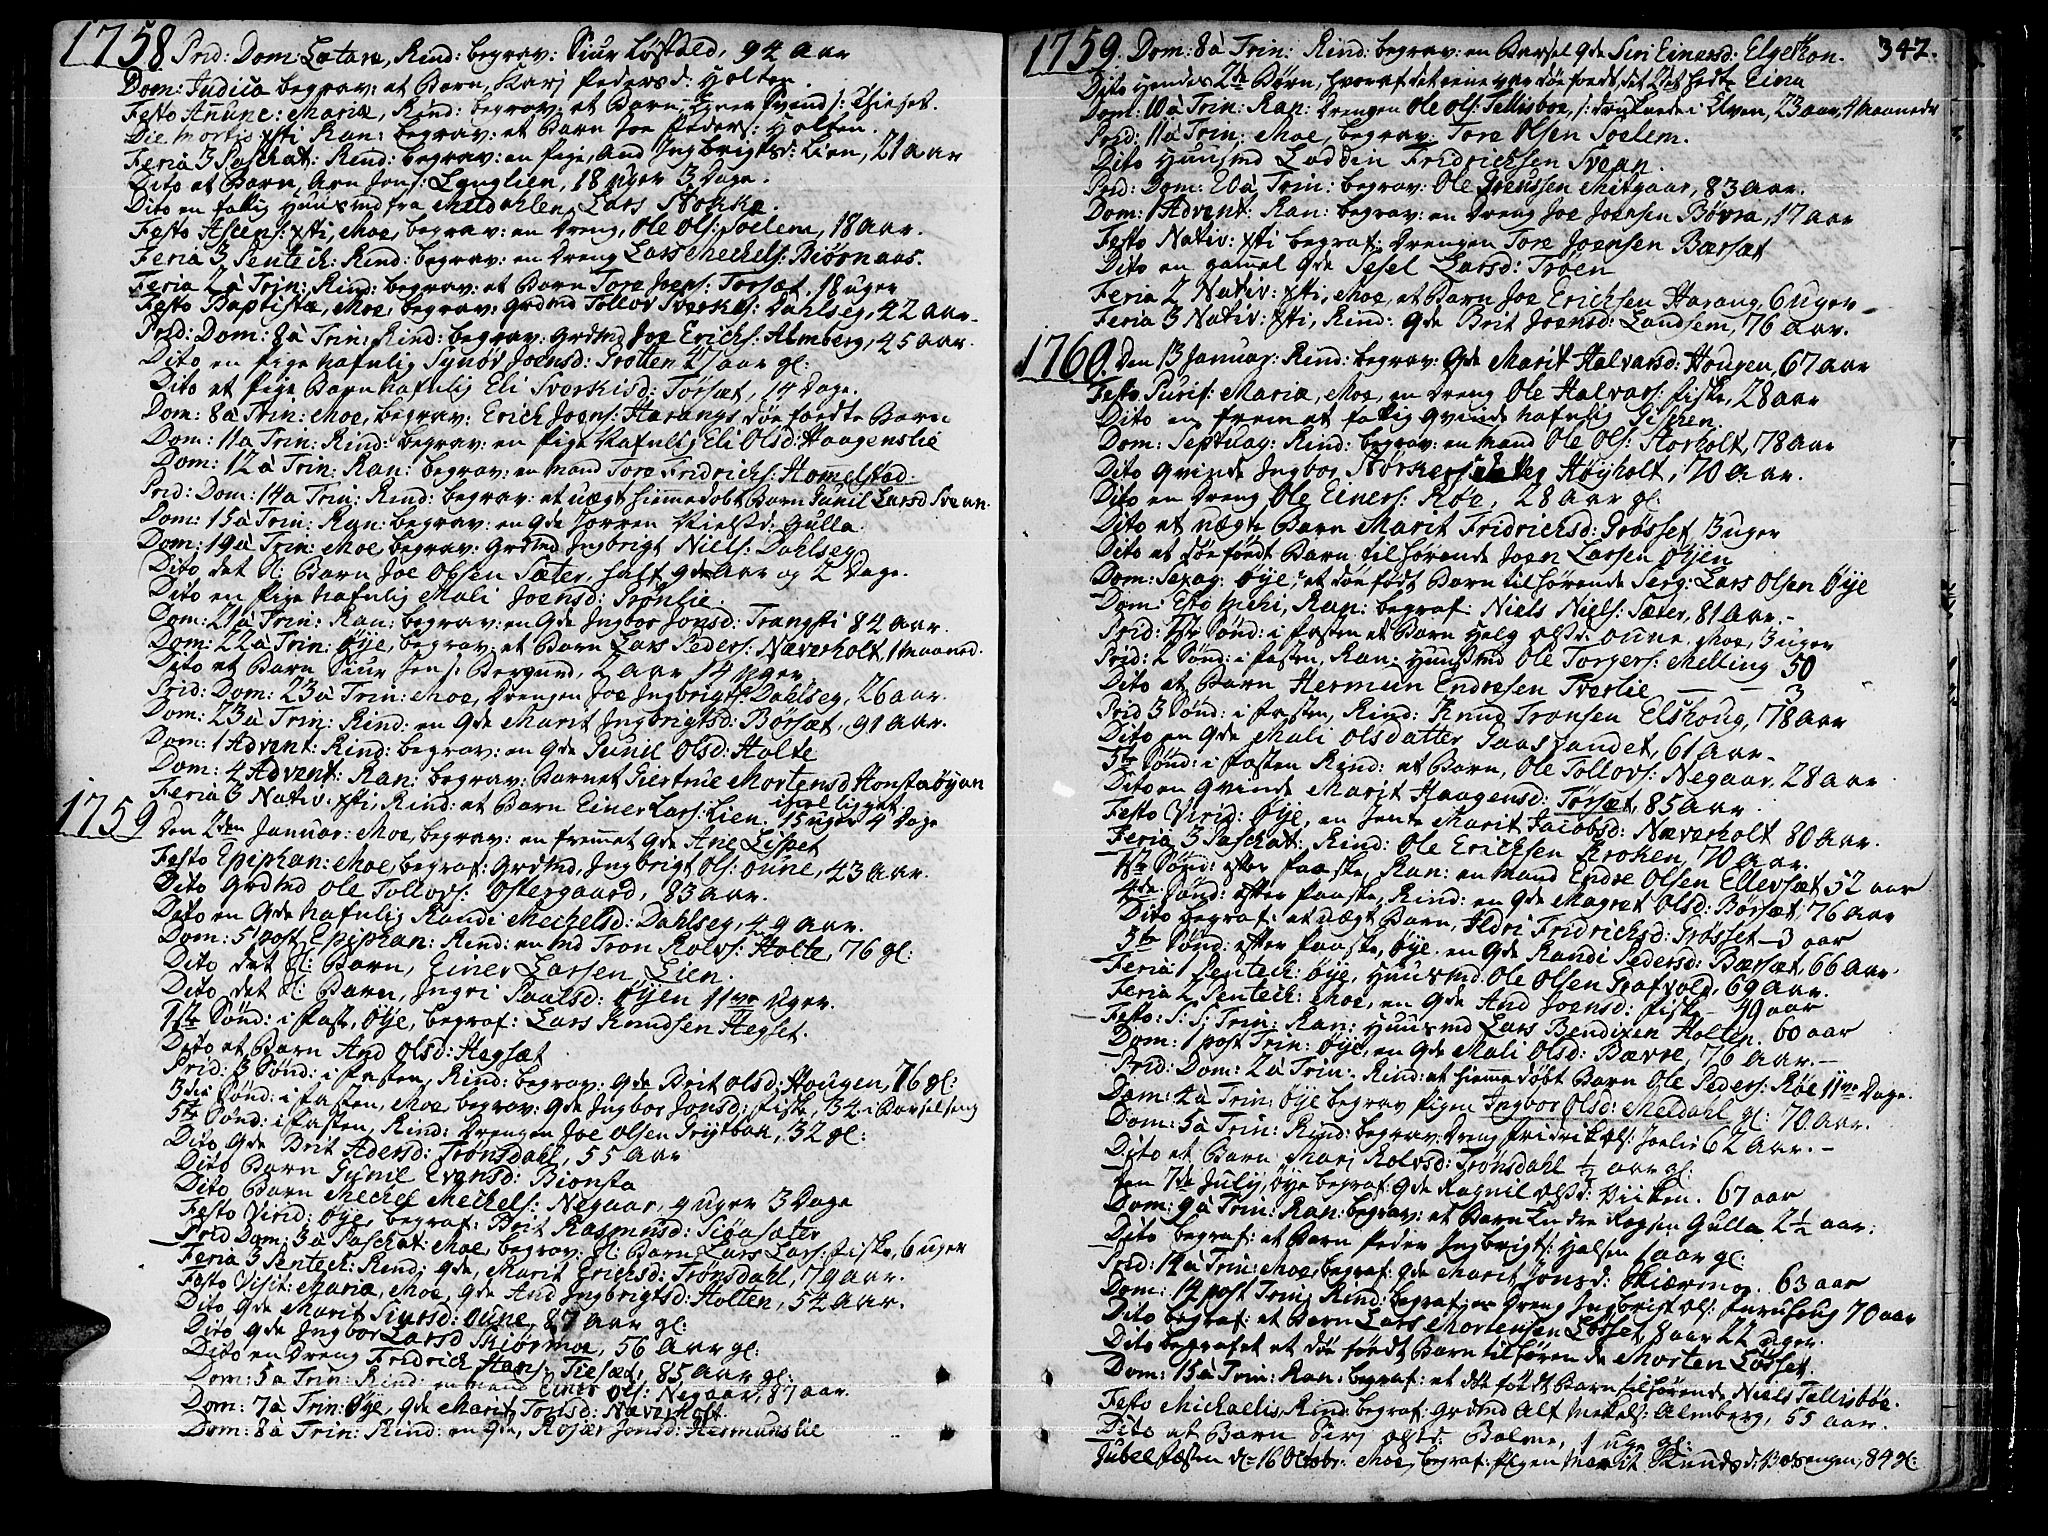 1758 Prid: Dom: Lætare, Rind: begrav: Siur Løfsted, 94 Aar
Dom: Judica begrav: et Barn, Karj Pedersd: Holten.
Festo Anunc: Mariæ, Rind: begrav: et Barn, Svend s:
Die Mortis Xsti Ran: begrav: et Barn Joe Peders: Holten.
Feria 3 Paschat: Rind: begrav: en Pige, And Ingbrigtsd: Lien, 21 Aar
Dito et Barn, Arn Jons: Lønglien, 18 uger 3 Dage.
Dito en fattig Huusmd fra Meldahlen, Lars Stokke.
Festo Ascens: Xsti, Moe, begrav: en Dreng, Ole Ols: Soelem, 18 aar.
Feria 3 Pentech: Rind: begrav: en Dreng Lars Mechels: Biørnaas.
Feria 2 Trin: Rind: begrav: et Barn Tore Joens: Torsæt, 18 uger
Festo Baptistæ, Moe, begrav: Grdmd Tollov Sverkes: Dahlseg, 42 Aar.
Prid: Dom: 8 à Trin: Rind: begrav: Grdmd Joe Erichs: Almberg, 45 Aar.
Dito en Pige nafnlig Synøv Joensd: Trotten 47 aar gl:
Dito et Pige Barn nafnlig Eli Sverkisd: Torsæt, 14 Dage.
Dom: 8 à Trin: Moe, begrav: Erich Joens: Harangs døe foedte Barn
Dom: 11 à Trin: Rind: begrav: en Pige Nafnlig Eli Olsd: Haagenslie
Dom: 12 à Trin: Ran: begrav: en mand Tore Fridrichs: Homelstad.
Prid: Dom: 14 à Trin: Rind: begrav: et uægt hiemedøbt Barn Gunil Larsd Svean.
Dom: 15 à Trin: Ran: begrav: en Qde Sorren Nielsd: Gulla.
Dom: 19 à Trin: Moe, begrav: Grdmd Ingbrigt Niels: Dahlseg
Dito det Sl: Barn Joe Olsen Sæter, half Aar og 2 Dage.
Dito en Pige nafnlig Mali Joensd: Trønlie.
Dom: 21 à Trin: Ran: begrav: en Qde Ingbor Jonsd: Trangsti 84 aar.
Dom: 22 à Trin: Øye, begrav: et Barn Lars Peders: Næverholt, 1 maaned.
Dito et Barn Siur Jens: Bergund, 2 aar 14 Uger.
Prid: Dom: 23 à Trin: Moe, Drengen Joe Ingbrigts: Dahlseg, 26 aar.
Dom: 23 à Trin: Rind: en Qde Marit Ingbrigtsd: Børsæt, 91 Aar.
Dom: 1 Advent: Rind: begrav: en Qde Gunil Olsd: Holte
Dom: 4 Advent: Ran: begrav: Barnet Giertrue Mortensd Honstaøyan
Feria 3 Nativ: Xsti, Rind: et Barn Einer Lars: Lien. 15 uger 4 Dage
1759 Den 2den Januar: Moe, begrav: en fremet Qde Ane Lisbet
Festo Epiphan: Moe, begraf: Grdmd, Ingbrigt Ols: Oune, 43 Aar.
Dito Grdmd Ole Tollovs: Ostergaard, 83 Aar.
Dito en Qde nafnlig Randi Mechelsd: Dahlseg, 49 Aar.
Dom: 5 post Epiphan: Rind: en md Tron Rolvs: Holte, 76 gl:
Dito det Sl: Barn, Einer Larsen Lien.
Dito det Sl: Barn, Ingri Paalsd: Øyen 11ve Uger.
1ste Sønd: i Faste, Øye, begraf: Lars Knudsen Hegset.
Dito et Barn And Olsd: Hegsæt
Prid: 3 Sønd: i Fasten, Rind: begrav: Qde Brit Olsd: Hougen, 76 gl:
3die Sønd: i Fasten, Moe, begrav: Qde Ingbor Jonsd: Fiske, 34 i Barselseng
5te Sønd: i Fasten, Rind: Drengen Joe Olsen Trøtbak, 32 gl:
Dito Qde Brit Adersd: Trønsdahl, 55 Aar
Dito Barn Gunil Evensd: Bionsta
Dito Barn Mechel Mechels: Negaar, 4 uger 3 Dage
Festo Virid: Øye, begraf: Brit Rasmusd: Sioasæter
Prid Dom: 3 à Paschat: Moe, begrav: Sl: Barn Lars Lars: Fiske, 6 uger
Feria 3 Pentech: Rind: Qde, Marit Erichsd: Trønsdahl, 79 Aar.
Festo Visit: Mariæ, Moe, Qde And Ingbrigtsd: Holten, 54 Aar.
Dito Qde Marit Siursd: Oune, 87 Aar gl:
Dito Qde Ingbor Larsd Skiørmoe, 56 Aar gl:
Dito en Dreng Fridrich Hans: Tiesæt, 85 Aar gl:
Dom: 5 à Trin: Rind: en mand Einer Ols: Negaar 87 aar.
Dom: 7 à Trin: Øye, Qde Marit Tonsd: Næverholt.
Dom: 8 à Trin: Rind: en Qde, Rojær Jonsd: Hermunslie
1759. Dom: 8 à Trin: Rind: begrav: en Barsel Qde Siri Einersd: Elgetkon. 347.
Dito Hendes 2de Børn, hvoraf det eene var døe foedt, det 2det hedte Eina
Dom: 10 à Trin: Ran: Drengen Ole Ols: Tellisboe, s: druknede i Elven, 23 aar, 4 Maaneder
Prid: 11 à Trin: Moe, begrav: Tore Olsen Soelem.
Dito Huusmd Loddin Fridrichsen Svean.
Prid: Dom: 20 à Trin: begrav: Ole Jenssen Mitgaar, 83 Aar.
Dom: 1 Advent: Ran: begrav: en Dreng Joe Joensen Bøvra, 17 aar
Festo Nativ: Xsti begraf: Drengen Tore Joensen Bærsæt
Dito en gamel Qde Sesel Larsd: Trøen
Feria 2 Nativ: Xsti, Moe, et Barn Joe Erichsen Harang, 6 uger
Feria 3 Nativ: Xsti, Rind: Qde Brit Joensd: Landsem, 76 aar.
1760. Den 13 Januar: Rind: begrav: Qde Marit Halvarsd: Hougen, 67 aar
Festo Purif: Mariæ, Moe, en Dreng Ole Halvars: Fiske, 28 aar
Dito en fremet fattig Qvinde nafnlig Gisken.
Dom: Septuag: Rind: begrav: en Mand Ole Ols: Storholt, 78 aar
Dito Qvinde Ingbor Størkersdatter Høyholt, 70 aar.
Dito en Dreng Ole Einers: Røe, 28 aar gl.
Dito et uægte Barn Marit Fridrichsd: Grøsset, 3 uger
Dito et døe føedt Barn tilhørende Joen Larsen Øyen
Dom: Sexag: Øye, et døe født Barn tilhørende Serg: Lars Olsen Øye
Dom: Esto Mihi, Ran: begraf: Niels Niels: Sæter, 81 Aar.
Prid: 1ste Sønd: i Fasten et Barn Helg Olsd: Oune Moe, 3 uger
Prid: 2 Sønd: i Fasten, Ran: Huusmd Ole Torgers: Melting 50
Dito et Barn Hermun Endresen Tverlie — — 3
Prid 3 Sønd: i Fasten, Rind: Knud Tronsen Elshoug, 78 Aar
Dito en Qde Mali Olsdatter Gaassandet, 61 Aar.
5te Sønd: i Fasten Rind: et Barn, Ole Tollovs: Negaar, 28 aar
Dito en Qvinde Marit Haagensd: Tørsæt, 85 Aar.
Festo Virid: Øye, en Jente Marit Jacobsd: Næverholt 80 Aar.
Feria 3 Paschat: Rind: Ole Erichsen Kroken, 70 Aar.
1ste Sønd: efter Paaske, Ran: en Mand Endre Olsen Ellevsæt 52 aar
4de Sønd: efter Paaske, Rind: en Qde Magret Olsd: Børsæt, 76 Aar
Dito begraf: et uægt Barn, Ildri Fridrichsd: Grøsset — 3 aar
5te Sønd: efter Paaske, Øye, en Qde Randi Pedersd: Bærsæt, 66 Aar.
Feria 1 Pentech: Øye, Huusmd Ole Olsen Grafvold, 69 Aar.
Feria 2 Pentech: Moe, en Qde And Joensd: Fiske — 49 aar
Festo: S: S: Trin: Ran: Huusmd Lars Bendixen Holten. 60 aar
Dom: 1 post Trin: Øye, en Qde Mali Olsd: Bævre, 76 Aar.
Prid: Dom: 2 à Trin: Rind: et hiemedøbt Barn Ole Peders: Røe 11ve Dage.
Dom: 4 à Trin: Øye begrav Pigen Ingbor Olsd: Meldahl gl: 70 Aar.
Dom: 5 à Trin: Rind: begrav: Dreng Fridrik Ols: Joelie 62 Aar.
Dito et Barn Marj Rolvsd: Trønsdahl ½ aar gl:
Den 7de July, Øye begraf: Qde Ragnil Olsd: Viiken. 67 aar
Dom: 9 à Trin: Ran: begrav: et Barn Endre Rogsen Gulla 2½ aar.
Dito begraf: et Barn Peder Ingbrigts: Halsen 1 aar gl:
Prid: 12 à Trin: Moe, begraf: Qde Marit Jonsd: Skiærmo. 63 aar
Dom: 14 post Trin: Rind: begraf: en Dreng Ingbrigt Ols: Furuhoug 70 aar
Dito begraf: et Barn Lars Mortensen Løsset, 8 aar 22 uger.
Dito begrafet et døe føedt Barn tilhørende Morten Løsset
Dom: 15 à Trin: Ran: begraf: et døe født Barn tilhørende Niels Tellisbøe.
Festo Michaelis, Rind: begraf: Grdmd Alf Mekels: Almberg, 55 aar.
Dito et Barn Siri Olsd: Bolme, 1 uge gl:
Jubel Fæsten d: 16 Octobr: Moe, begraf: Pigen Marit Knudsd: Botsengen, 84 gl: